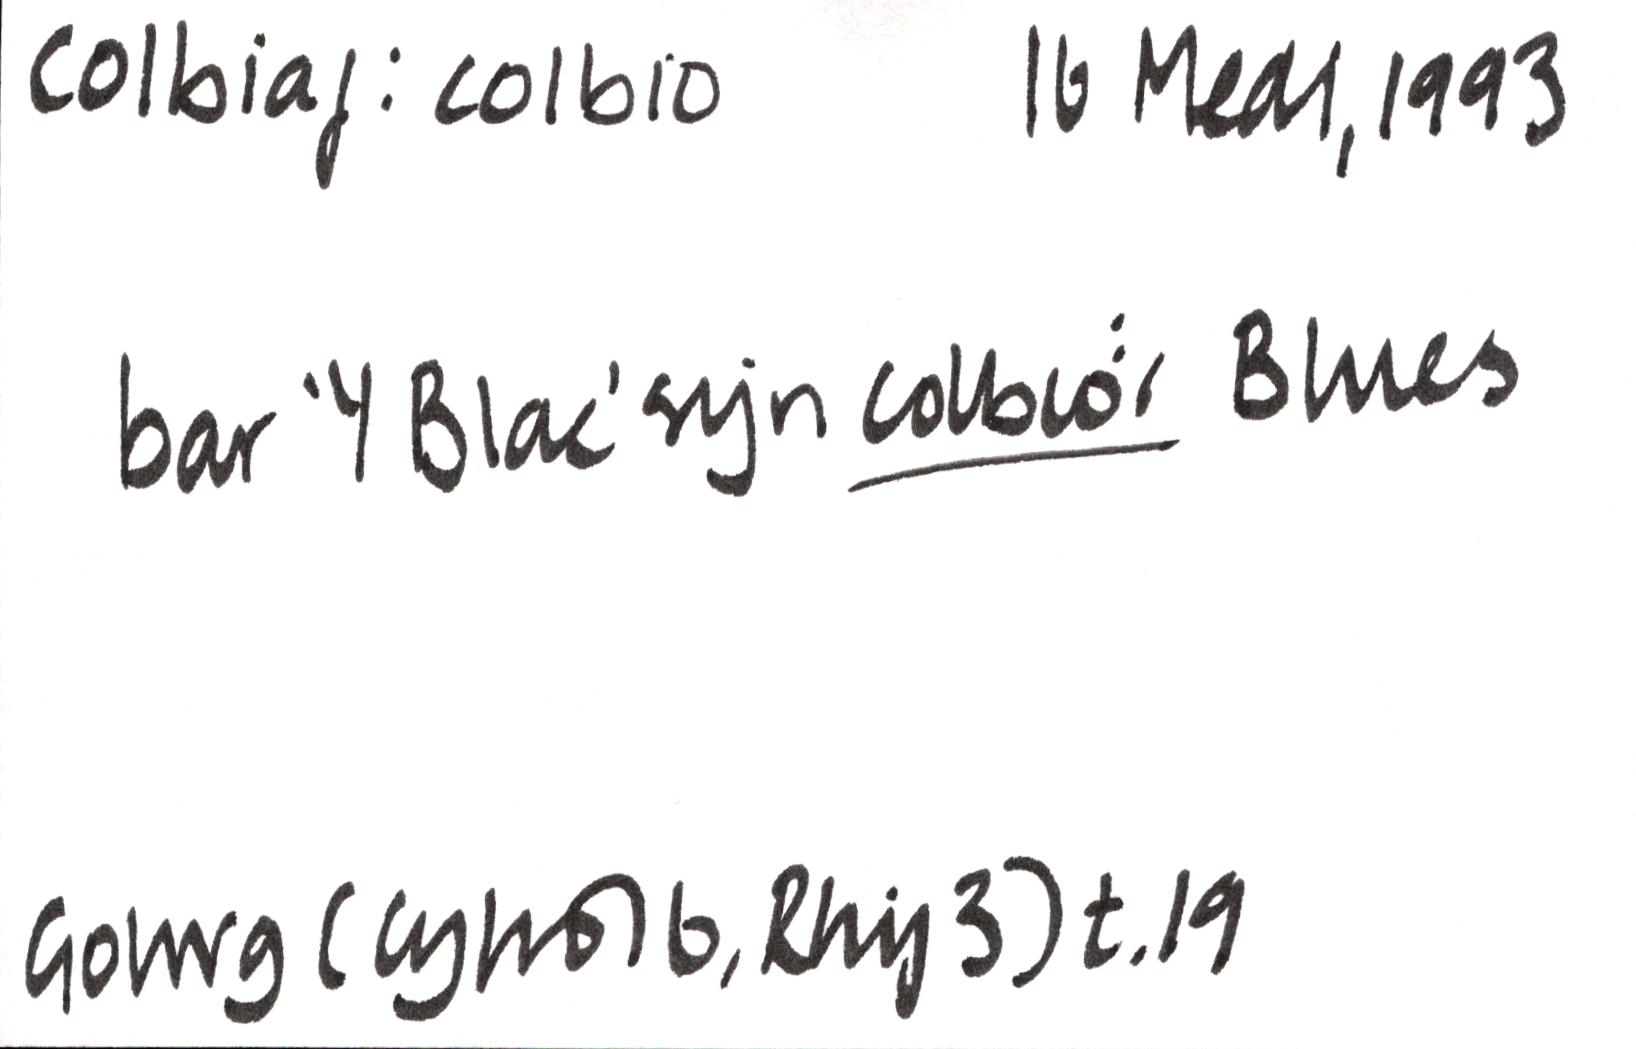 colbiaf: colbio 16 Medi, 1993
bar 'Y Blac' sy'n colbio'r Blues
Golwg (Cyfrol 6, Rhif 3) t. 19